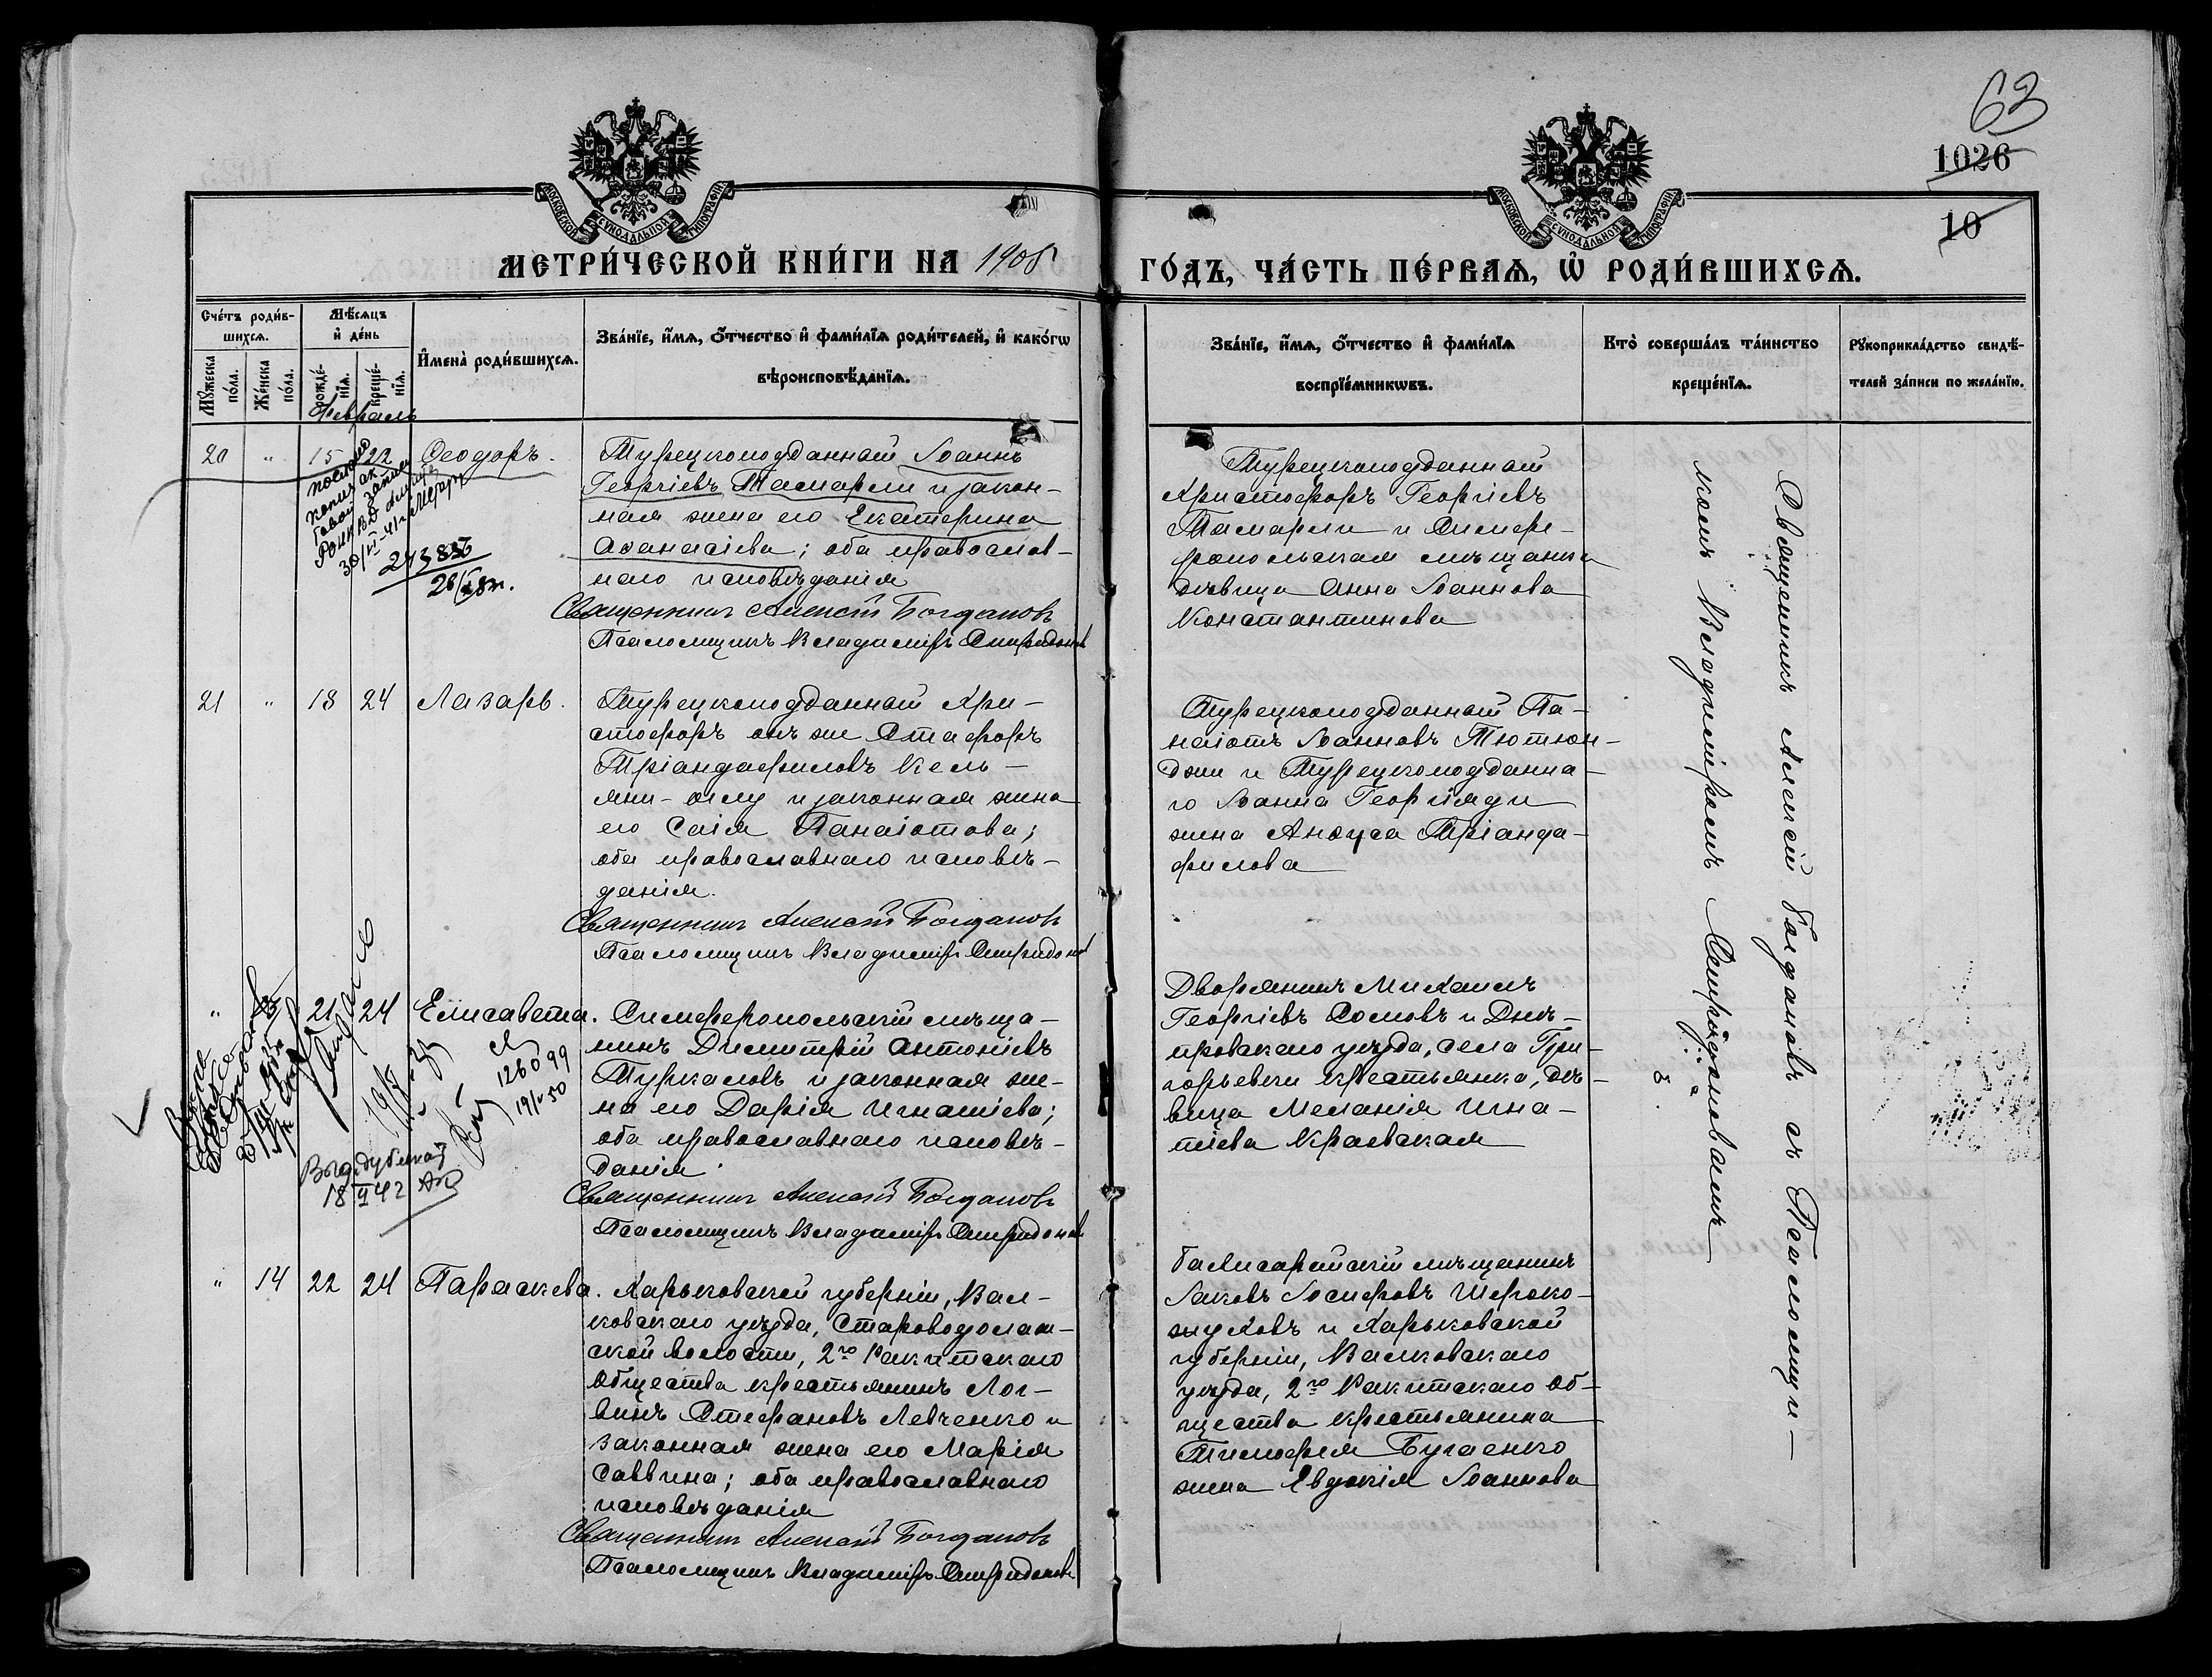 63
1026
10
МОСКОВСКОЙ СѴНОДАЛЬНОЙ ТИПОГРАФІИ
МОСКОВСКОЙ СѴНОДАЛЬНОЙ ТИПОГРАФІИ
МЕТРИ́ЧЕСКОЙ КНИ́ГИ НА 1908
ГО́ДЪ, ЧА́СТЬ ПЕ́РВАѦ, Ѡ҆ РОДИ́ВШИХСѦ.
Сче́тъ роди́в-
шихсѧ.
Мꙋ́жеска по́ла.
Же́нска по́ла.
Мѣ́сѧцъ
и҆ де́нь
рожде́-
нїѧ.
креще́-
нїѧ.
И҆мена̀ роди́вшихсѧ.
Зва́нїе, и҆́мѧ, ѻ҆́тчество и҆ фами́лїѧ роди́телей, и҆ како́гѡ
вѣроисповѣ́данїѧ.
Зва́нїе, и҆́мѧ, ѻ҆́тчество и҆ фами́лїѧ
воспрїе́мникѡвъ.
Кто̀ соверша́лъ та́инство
креще́нїѧ.
Рꙋкоприкла́дство свидѣ́-
телей за́писи по жела́нїю.
Февраль
20 " 15 22 Ѳеодоръ.
Турецкоподданный Іоаннъ
Георгіевъ Тамарли и закон-
ная жена его Екатерина
Аѳанасіева; оба православ-
наго исповѣданія
Священникъ Алексій Богдановъ
Псаломщикъ Владиміръ Спиридоновъ
Турецкоподданный
Христофоръ Георгіевъ
Тамарли и Симфе-
ропольская мѣщанка
дѣвица Анна Іоаннова
Константинова
21 " 18 24 Лазарь.
Турецкоподданный Хри-
стофоръ онъ же Стафоръ
Тріандафиловъ Кель-
мни-оглу и законная жена
его Саія Панаіотова;
оба православнаго исповѣ-
данія.
Священникъ Алексій Богдановъ
Псаломщикъ Владиміръ Спиридоновъ
Турецкоподданный Па-
наіотъ Іоанновъ Тютюн-
джи и Турецкоподданна-
го Іоанна Георгіяди
жена Анѳуса Тріанда-
филова
" 21 24 Елисавета.
126099
19/V 50
18 II 42
Симферопольскій мѣща-
нинъ Димитрій Антоніевъ
Туркаловъ и законная же-
на его Дарія Игнатіева;
оба православнаго исповѣ-
данія.
Священникъ Алексій Богдановъ
Псаломщикъ Владиміръ Спиридоновъ
Дворянинъ Михаилъ
Георгіевъ Сомовъ и Днѣ-
провскаго уѣзда, села Гри-
горьевки крестьянка, дѣ-
вица Меланія Игна-
тіева Краевская
" 14 22 24 Параскева.
Харьковской губерніи, Вал-
ковскаго уѣзда, Староводолаж-
ской волости, 2го Ракитскаго
общества крестьянинъ Лог-
винъ Стефановъ Левченко и
законная жена его Марія
Саввина; оба православнаго
исповѣданія
Священникъ Алексій Богдановъ
Псаломщикъ Владиміръ Спиридоновъ
Бахчисарайскій мѣщанинъ
Іаковъ Іосифовъ Шероко-
жуховъ и Харьковской
губерніи, Валковскаго
уѣзда, 2го Ракитскаго об-
щества крестьянина
Тимофея Бугаенко
жена Евдокія Іоаннова
Священникъ Алексій Богдановъ съ Псаломщи-
комъ Владиміромъ Спиридоновымъ